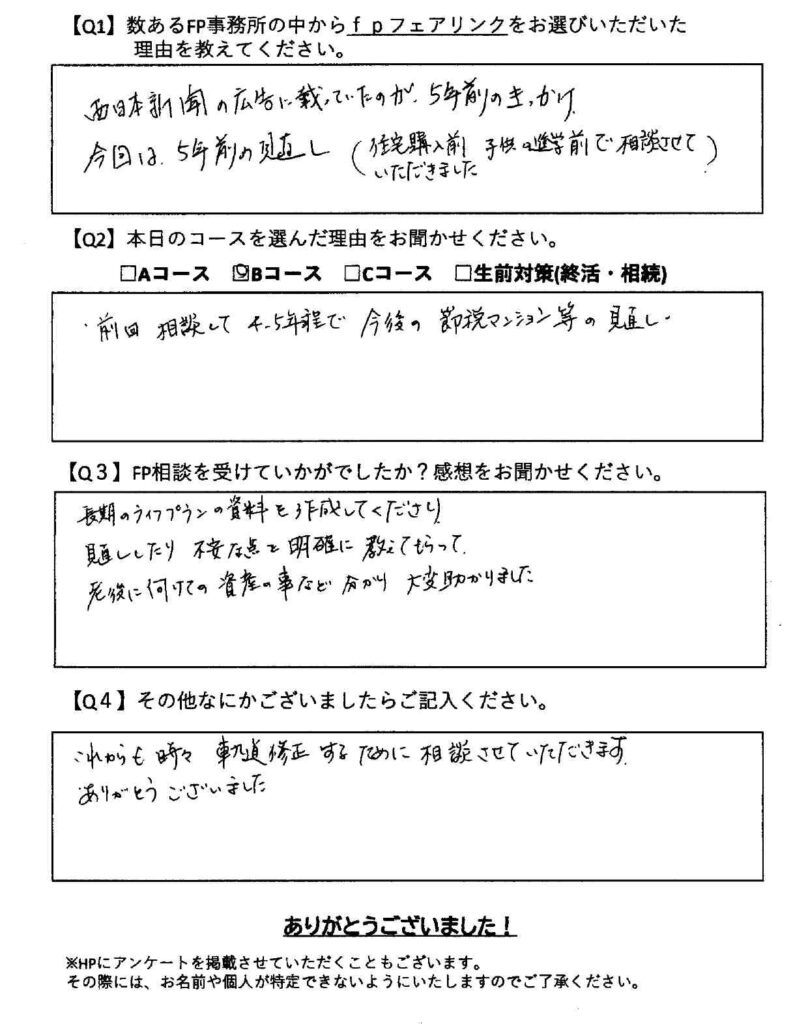 【Q1】数あるFP事務所の中からｆｐフェアリンクをお選びいただいた
理由を教えてください。
西日本新聞の広告に載っていたのが、5年前のきっかけ
今回は、5年前の見直し（住宅購入前 子供の進学前で相談させて
いただきました）
【Q2】本日のコースを選んだ理由をお聞かせください。
□Aコース ☑Bコース □Cコース □生前対策(終活・相続)
・前回 相談して 4.5年程で 今後の 節税マンション等の見直し・
【Q３】FP相談を受けていかがでしたか？感想をお聞かせください。
長期のライフプランの資料を作成してくださり
見直ししたり 不安な点を明確に 教えてもらって、
老後に向けての 資産の事など 分かり 大変助かりました
【Q４】その他なにかございましたらご記入ください。
これからも 時々 軌道修正するために 相談させていただきます。
ありがとうございました
ありがとうございました！
※HPにアンケートを掲載させていただくこともございます。
その際には、お名前や個人が特定できないようにいたしますのでご了承ください。